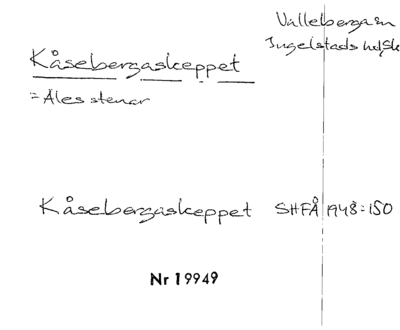 Vallebergasn
Ingelstads hd, Sk
Kåsebergaskeppet
= Ales stenar
Kåsebergaskeppet SHFÅ 1948:150
Nr 19949